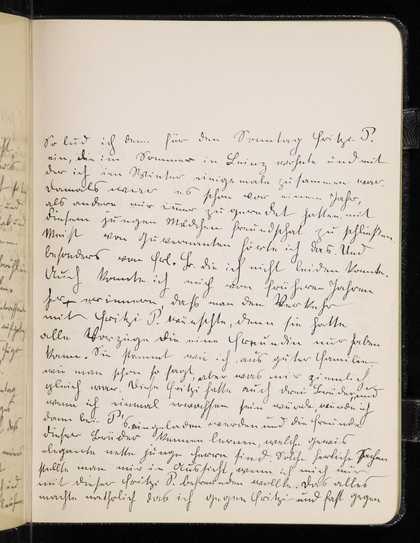 So lud ich denn für den Sonntag Fritzi P.
ein, die im Sommer in Leinz wohnte und mit
der ich im Winter einigemale zusammen war.
Damals war es schon vor einem Jahr,
als andere mir immer zugeredet hatten mit
diesem jungen Mädchen Freundschaft zu schließen.
Meist von Guvernanten hörte ich das. Und
besonders von Frl. die ich nicht leiden konnte.
Auch konnte ich mich von früheren Jahren
her erinnern dass man den Verkehr
mit Fritzi P. wünschte, denn sie hatte
alle Vorzüge die eine Freundin nur haben
kann. Sie stammt wie ich aus guter Familie
wie man schon so sagt, aber was mir ziemlich
gleich war. Diese Fritzi hatte auch drei Brüder und
wenn ich einmal erwachsen sein würde, würde ich
dann bei P's eingeladen werden und die Freunde
dieser Brüder kennen lernen, welche gewis
elegante nette junge Herren sind. Solche herrliche Sachen
stellte man mir in Aussicht, wenn ich mich nur
mit dieser Fritzi P. befreunden wollte. Das alles
machte natürlich das ich gegen Fritzi und fast gegen